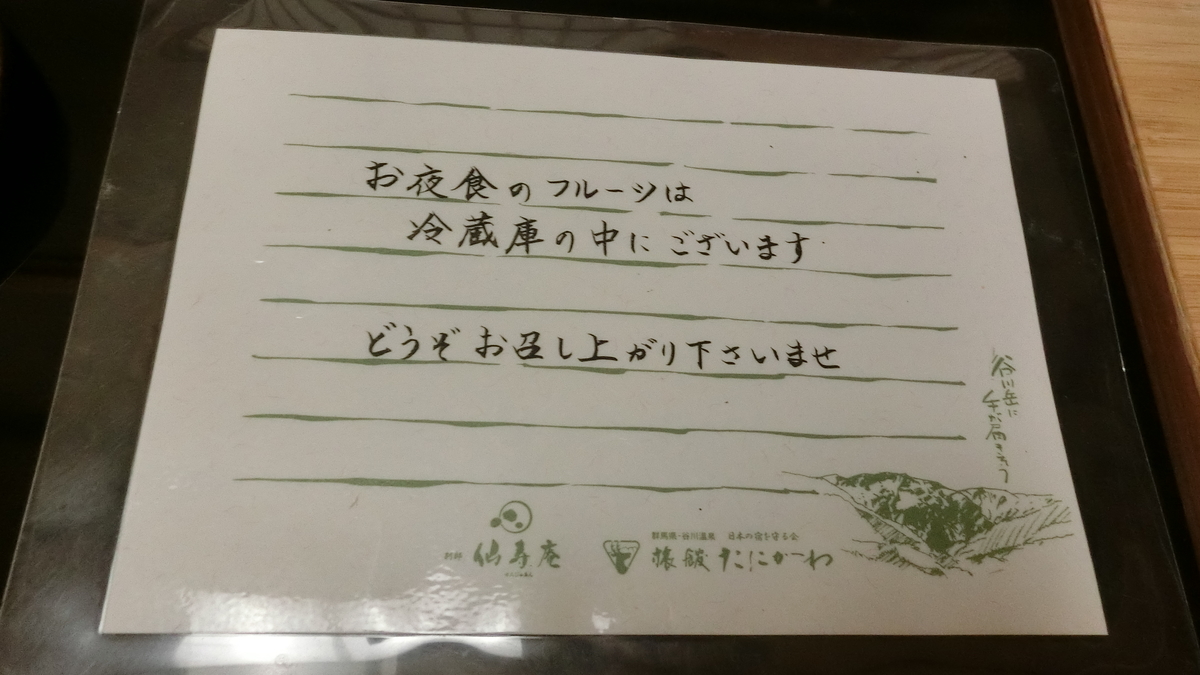 お夜食のフルーツは
冷蔵庫の中にございます
どうぞお召し上がり下さいませ
谷川岳に
手が届きそう
別邸 仙寿庵
せんじゅあん
群馬県・谷川温泉 日本の宿を守る会
旅館たにがわ